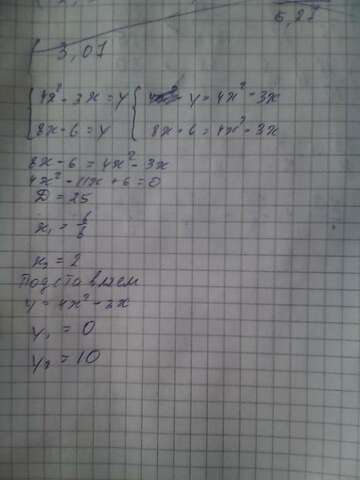 6,27
3,07
4x² - 3x = y y = 4x² - 3x
8x - 6 = y 8x - 6 = 4x² - 3x
8x - 6 = 4x² - 3x
4x² - 11x + 6 = 0
D = 25
x₁ =
x₂ = 2
Подставляем
y = 4x² - 3x
y₁ = 0
y₂ = 10